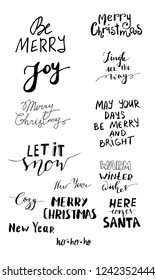 Be
MERRY
Joy
Merry
Christmas
LET IT
snow
New Year
Cozy
MERRY
CHRISTMAS
New Year
ho-ho-ho
Merry
Christmas
Jingle
all the
way
MAY YOUR
DAYS
BE MERRY
AND
BRIGHT
WARM
WINTER
wishes
HERE
comes
SANTA
shutterstock
1242352444